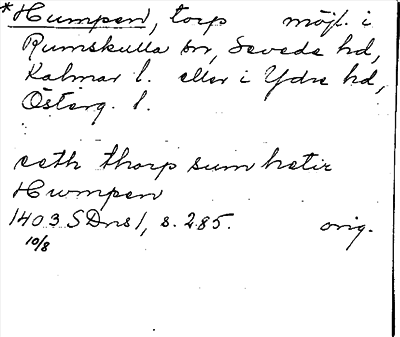 *Humpen, torp möjl. i
Rumskulla sn, Sevede hd,
Kalmar l. eller i Ydre hd,
Österg. l.
eeth thorp sum hetir
Hwmpen
1403 SDns 1, s. 285. orig.
10/8